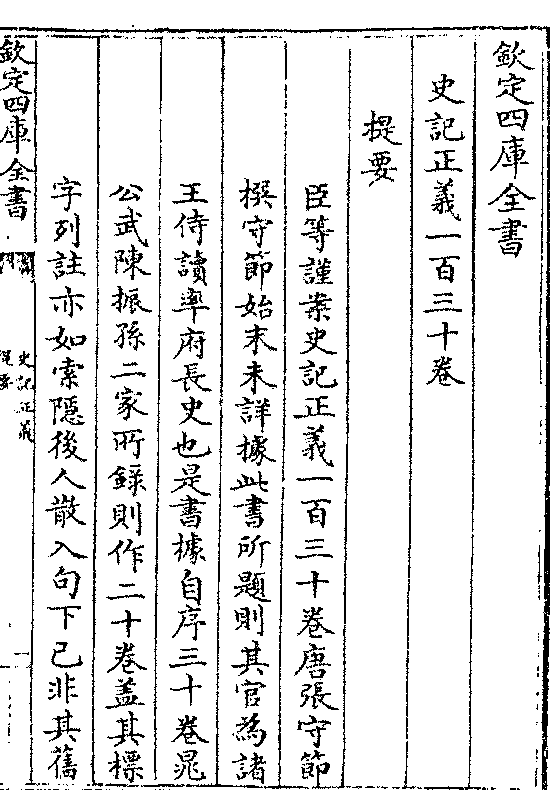 欽定四庫全書
史記正義一百三十卷
提要
臣等謹案史記正義一百三十卷唐張守節
撰守節始末未詳據此書所題則其官為諸
王侍讀率府長史也是書據自序三十卷晁
公武陳振孫二家所錄則作二十卷蓋其標
字列註亦如索隱後人散入句下已非其舊
欽定四庫全書
史記正義
提要
一